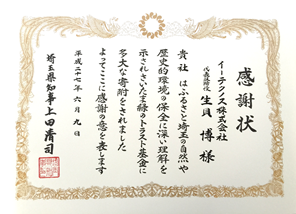 感謝状
イーテクノス株式会社
代表取締役
生貝 博 様
貴社はふるさと埼玉の自然や
歴史的環境の保全に深い理解を
示されさいたま緑のトラスト基金に
多大な寄附をされました
よってここに感謝の意を表します
平成二十七年六月九日
埼玉県知事 上田清司